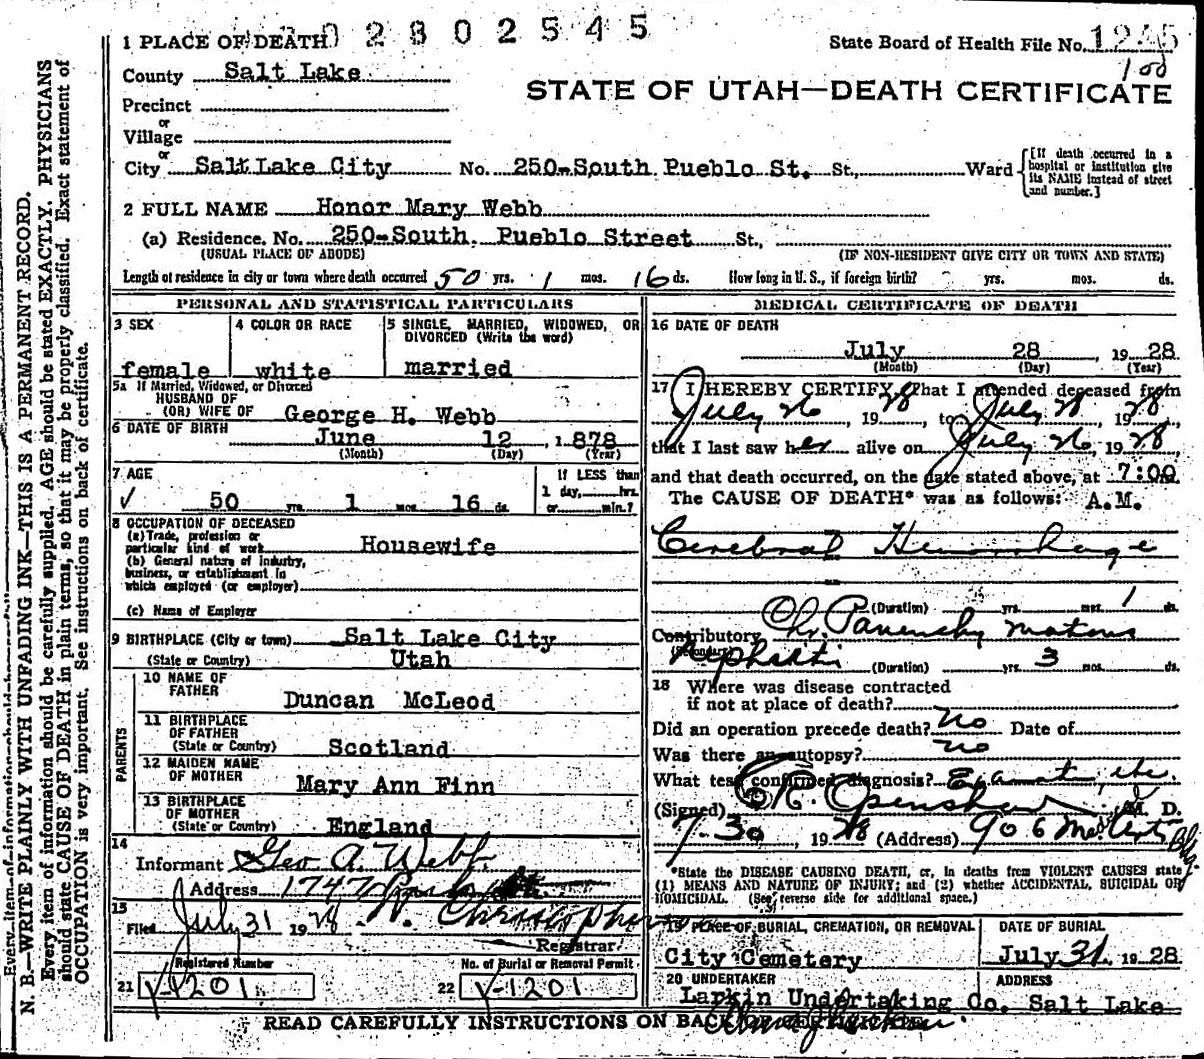 2802545
1 PLACE OF DEATH
State Board of Health File No. 1245
100
County Salt Lake
STATE OF UTAH—DEATH CERTIFICATE
Precinct
or
Village
or
City Salt Lake City No. 250-South Pueblo St. St., Ward
[If death occurred in a hospital or institution give its NAME instead of street and number.]
2 FULL NAME Honor Mary Webb
(a) Residence. No. 250-South Pueblo Street St.,
(USUAL PLACE OF ABODE) (IF NON-RESIDENT GIVE CITY OR TOWN AND STATE)
Length of residence in city or town where death occurred 50 yrs. 1 mos. 16 ds. How long in U. S., if foreign birth? yrs. mos. ds.
PERSONAL AND STATISTICAL PARTICULARS
3 SEX
female
4 COLOR OR RACE
white
5 SINGLE, MARRIED, WIDOWED, OR DIVORCED (Write the word)
married
5a If Married, Widowed, or Divorced
HUSBAND OF
(OR) WIFE OF George H. Webb
6 DATE OF BIRTH June 12, 1878
(Month) (Day) (Year)
7 AGE
✓ 50 yrs. 1 mos. 16 ds.
If LESS than
1 day, hrs.
or min.?
8 OCCUPATION OF DECEASED
(a) Trade, profession or
particular kind of work Housewife
(b) General nature of industry,
business, or establishment in
which employed (or employer)
(c) Name of Employer
9 BIRTHPLACE (City or town) Salt Lake City
(State or Country) Utah
PARENTS
10 NAME OF
FATHER Duncan McLeod
11 BIRTHPLACE
OF FATHER
(State or Country) Scotland
12 MAIDEN NAME
OF MOTHER Mary Ann Finn
13 BIRTHPLACE
OF MOTHER
(State or Country) England
14
Informant Geo A. Webb
Address 1747
15
Filed July 31 1928
Registrar.
Registered Number
21
1201
No. of Burial or Removal Permit
22
1201
MEDICAL CERTIFICATE OF DEATH
16 DATE OF DEATH
July 28, 1928
(Month) (Day) (Year)
17 I HEREBY CERTIFY, That I attended deceased from
July 26, 1928 to July 28, 1928
that I last saw her alive on July 26, 1928
and that death occurred, on the date stated above, at 7:00
The CAUSE OF DEATH* was as follows: A.M.
Cerebral Hemorrhage
(Duration) yrs. mos. 1 ds.
Contributory Chr.
(Secondary) (Duration) yrs. 3 mos. ds.
18 Where was disease contracted
if not at place of death?
Did an operation precede death? no Date of
Was there an autopsy? no
What test confirmed diagnosis?
(Signed) Openshaw, M. D.
7-30, 1928 (Address) 906
*State the DISEASE CAUSING DEATH, or, in deaths from VIOLENT CAUSES state
(1) MEANS AND NATURE OF INJURY; and (2) whether ACCIDENTAL, SUICIDAL OR
HOMICIDAL. (See reverse side for additional space.)
19 PLACE OF BURIAL, CREMATION, OR REMOVAL
City Cemetery
DATE OF BURIAL
July 31, 1928
20 UNDERTAKER
Larkin Undertaking Co.
ADDRESS
Salt Lake
READ CAREFULLY INSTRUCTIONS ON BACK OF CERTIFICATE
N. B.—WRITE PLAINLY WITH UNFADING INK—THIS IS A PERMANENT RECORD.
Every item of information should be carefully supplied. AGE should be stated EXACTLY. PHYSICIANS
should state CAUSE OF DEATH in plain terms, so that it may be properly classified. Exact statement of
OCCUPATION is very important. See instructions on back of certificate.